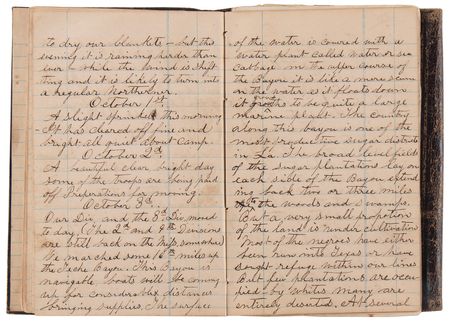 to dry our blankets - but this
evening it is raining harder than
ever - while the wind is shif
ting and it is likely to turn into
a regular Northerner.
October 1st
A slight sprinkle this morning
- It has cleared off fine and
bright all quiet about camp.
October 2d
A beautiful clear bright day
some of the troops are being paid
off Preperations for moving.
October 3d
Our Div, and the 3d Div, moved
to day. The 2d and 4th Divisions
are still back on the Miss, somewhere
We marched some 16th miles up
the Teche Bayou. This Bayou is
navigable boats will be coming
up for considerable distances
bringing supplies. The surface
of the water is covered with a
water plant called water or sea
cabbage in the upper course of
the Bayou it is like a mere scum
on the water as it floats down
it grows to be quite a large
marine plant. The country
along this bayou is one of the
most productive sugar districts
in La. The broad level fields
of the sugar plantations lay on
each side of the Bayou extend
ing back two or three miles
to the woods and swamps.
But a very small proportion
of the land is under cultivation
Most of the negroes have either
been run into Texas or have
sought refuge within our lines
But few plantations are occu
pied by whites many are
entirely deserted. At several